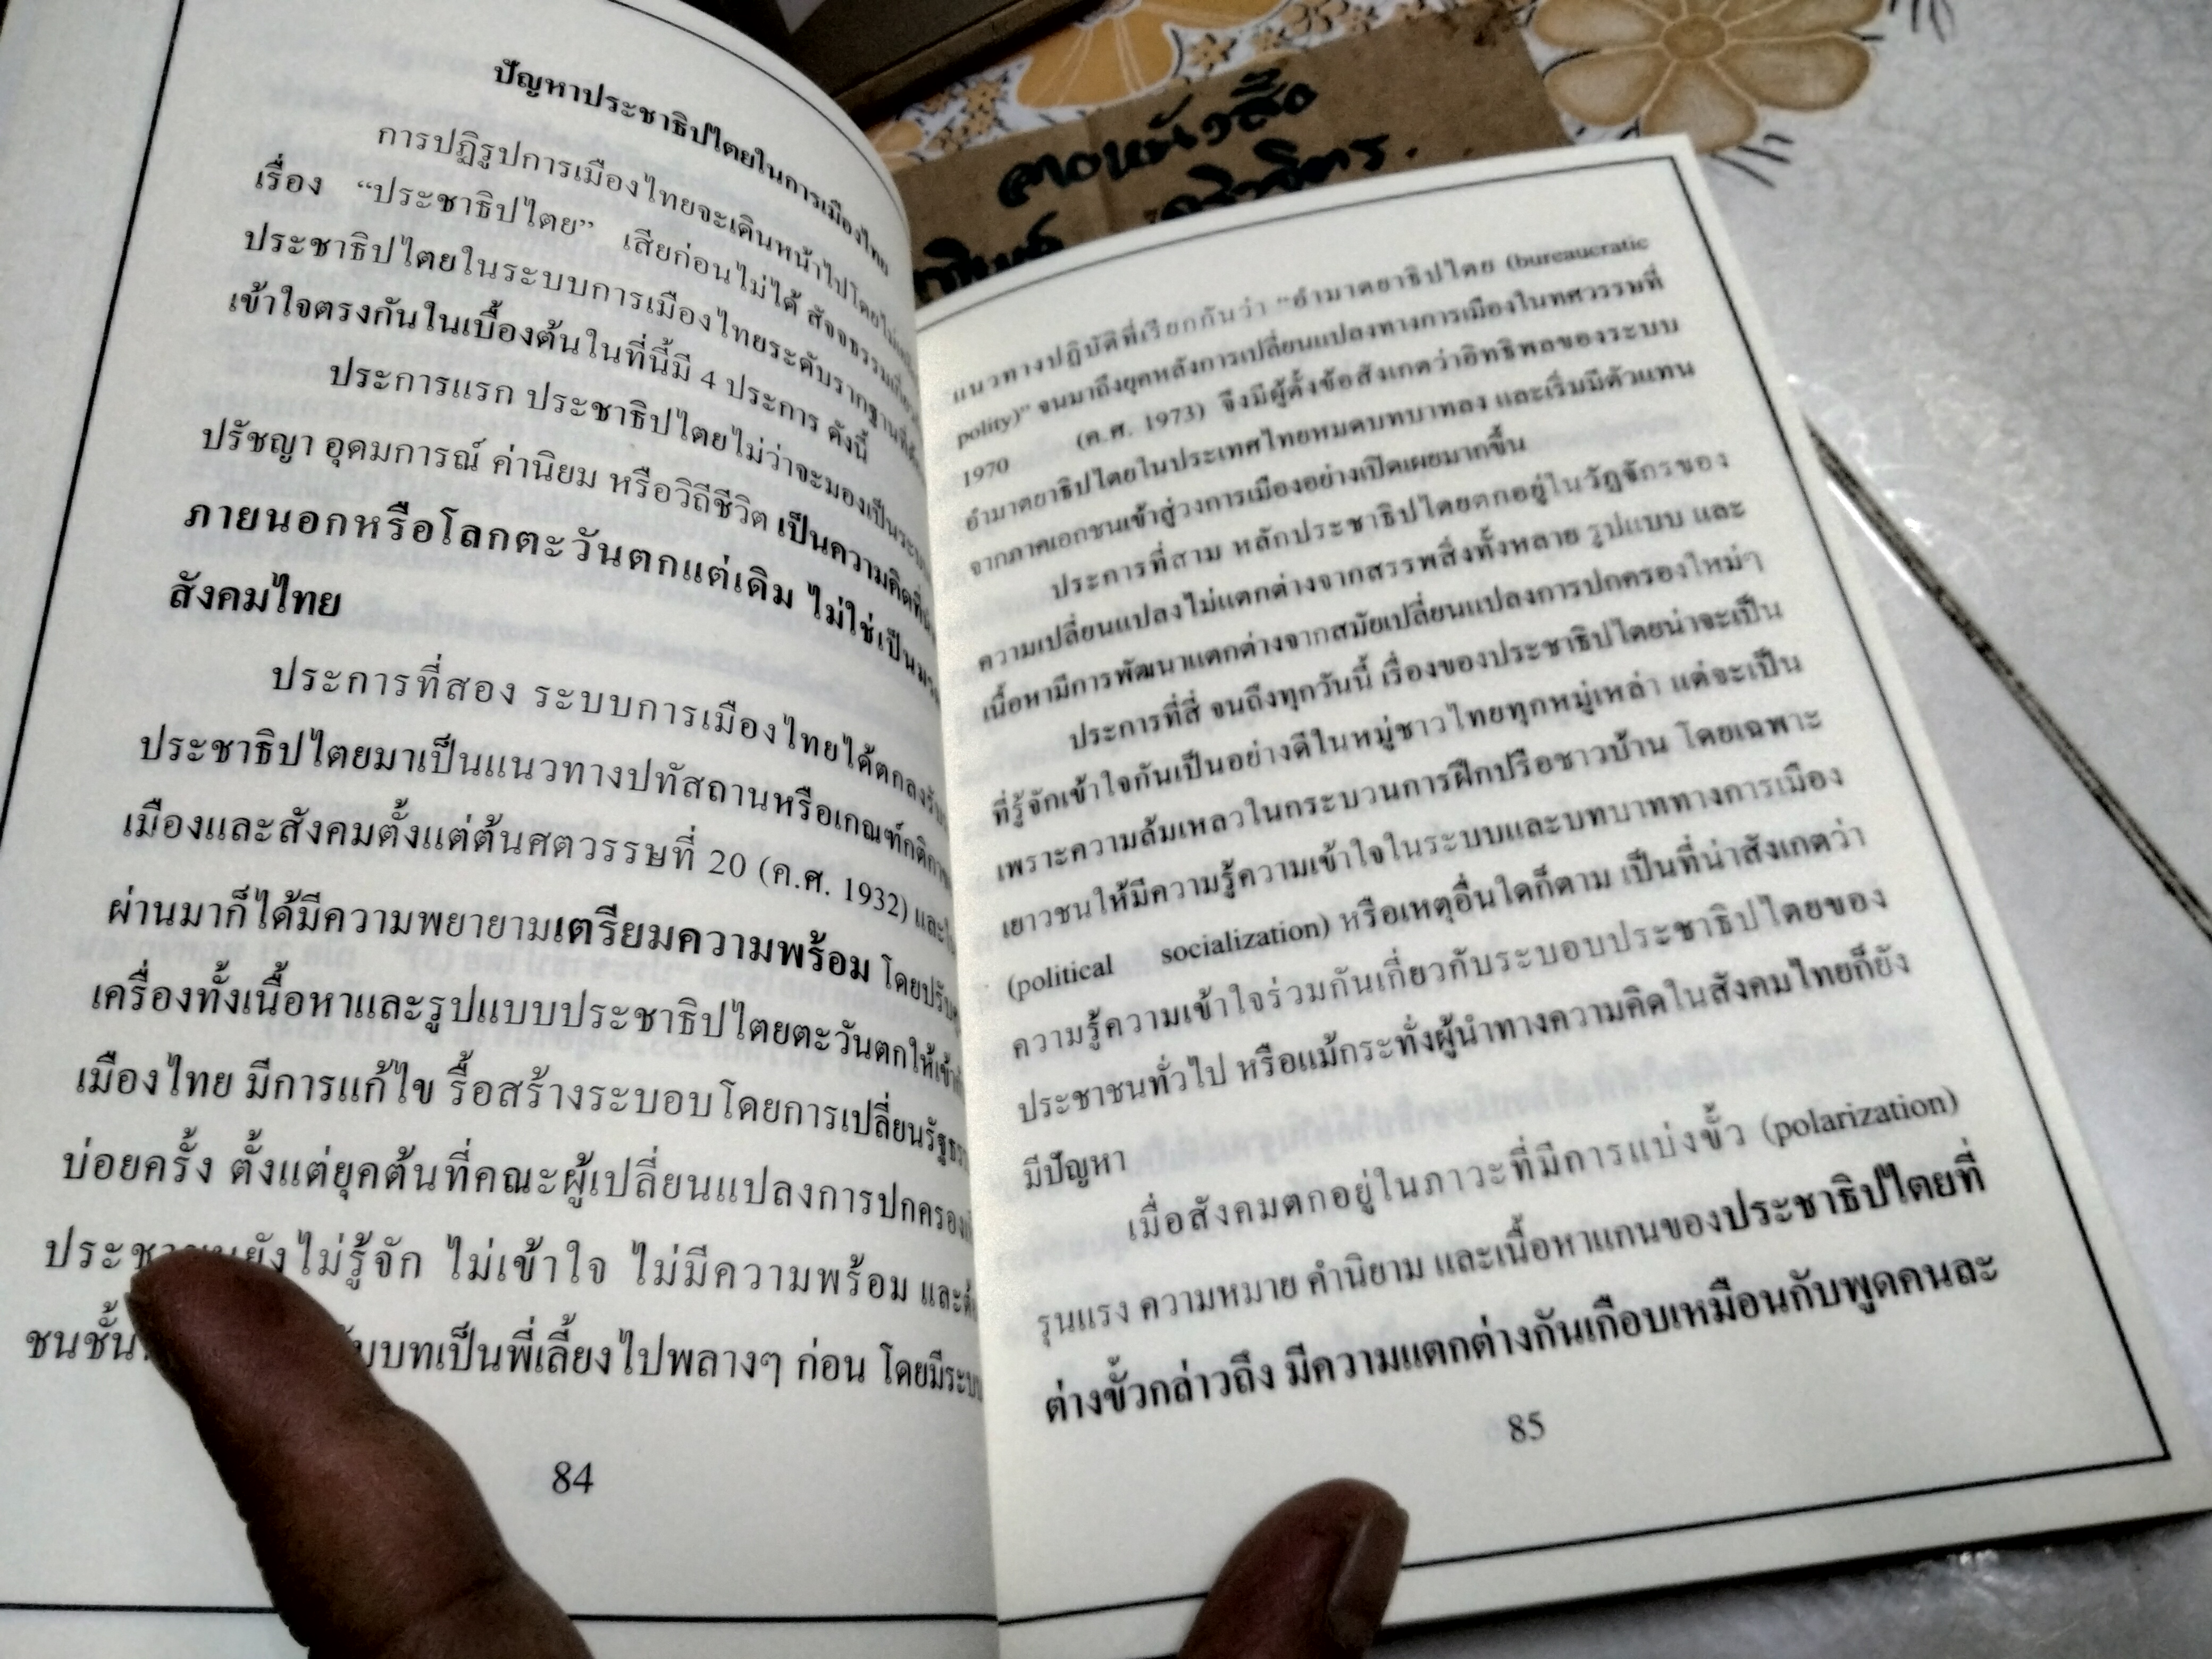 ปัญหาประชาธิปไตยในการเมืองไทย
การปฏิรูปการเมืองไทยจะเดินหน้าไปโดยไม่
เรื่อง “ประชาธิปไตย” เสียก่อนไม่ได้ สัจจธรรมเกี่ยว
ประชาธิปไตยในระบบการเมืองไทยระดับรากฐานที่
เข้าใจตรงกันในเบื้องต้นในที่นี้มี 4 ประการ ดังนี้
ประการแรก ประชาธิปไตยไม่ว่าจะมองเป็นระบบ
ปรัชญา อุดมการณ์ ค่านิยม หรือวิถีชีวิต เป็นความคิดที่
ภายนอกหรือโลกตะวันตกแต่เดิม ไม่ใช่เป็น
สังคมไทย
ประการที่สอง ระบบการเมืองไทยได้ตกลงรับ
ประชาธิปไตยมาเป็นแนวทางปทัสถานหรือเกณฑ์กติกา
เมืองและสังคมตั้งแต่ต้นศตวรรษที่ 20 (ค.ศ. 1932) และ
ผ่านมาก็ได้มีความพยายามเตรียมความพร้อม โดยปรับ
เครื่องทั้งเนื้อหาและรูปแบบประชาธิปไตยตะวันตกให้เข้า
เมืองไทย มีการแก้ไข รื้อสร้างระบอบโดยการเปลี่ยนรัฐธรร
บ่อยครั้ง ตั้งแต่ยุคต้นที่คณะผู้เปลี่ยนแปลงการปกครอง
ยังไม่รู้จัก ไม่เข้าใจ ไม่มีความพร้อม และ
ชนชั้น บบทเป็นพี่เลี้ยงไปพลางๆ ก่อน โดยมีระบบ
84
สอหนังสือ
แนวทางปฏิบัติที่เรียกกันว่า “อำมาตยาธิปไตย (bureaucratic
polity)” จนมาถึงยุคหลังการเปลี่ยนแปลงทางการเมืองในทศวรรษที่
1970 (ค.ศ. 1973) จึงมีผู้ตั้งข้อสังเกตว่าอิทธิพลของระบบ
อำมาตยาธิปไตยในประเทศไทยหมดบทบาทลง และเริ่มมีตัวแทน
จากภาคเอกชนเข้าสู่วงการเมืองอย่างเปิดเผยมากขึ้น
ประการที่สาม หลักประชาธิปไตยตกอยู่ในวัฏจักรของ
ความเปลี่ยนแปลงไม่แตกต่างจากสรรพสิ่งทั้งหลาย รูปแบบ และ
เนื้อหามีการพัฒนาแตกต่างจากสมัยเปลี่ยนแปลงการปกครองใหม่ๆ
ประการที่สี่ จนถึงทุกวันนี้ เรื่องของประชาธิปไตยน่าจะเป็น
ที่รู้จักเข้าใจกันเป็นอย่างดีในหมู่ชาวไทยทุกหมู่เหล่า แต่จะเป็น
เพราะความล้มเหลวในกระบวนการฝึกปรือชาวบ้าน โดยเฉพาะ
เยาวชนให้มีความรู้ความเข้าใจในระบบและบทบาททางการเมือง
(political socialization) หรือเหตุอื่นใดก็ตาม เป็นที่น่าสังเกตว่า
ความรู้ความเข้าใจร่วมกันเกี่ยวกับระบอบประชาธิปไตยของ
ประชาชนทั่วไป หรือแม้กระทั่งผู้นำทางความคิดในสังคมไทยก็ยัง
มีปัญหา
เมื่อสังคมตกอยู่ในภาวะที่มีการแบ่งขั้ว (polarization)
รุนแรง ความหมาย คำนิยาม และเนื้อหาแกนของประชาธิปไตยที่
ต่างขั้วกล่าวถึง มีความแตกต่างกันเกือบเหมือนกับพูดคนละ
85